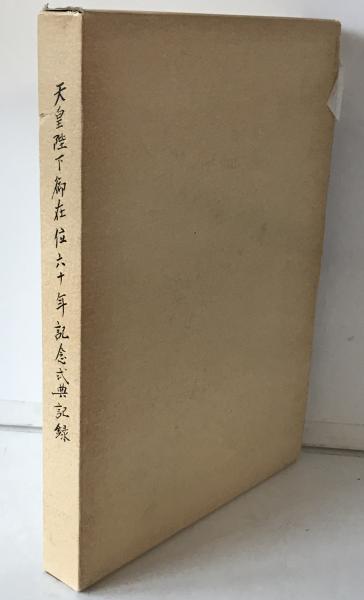 天皇陛下御在位六十年記念式典記録